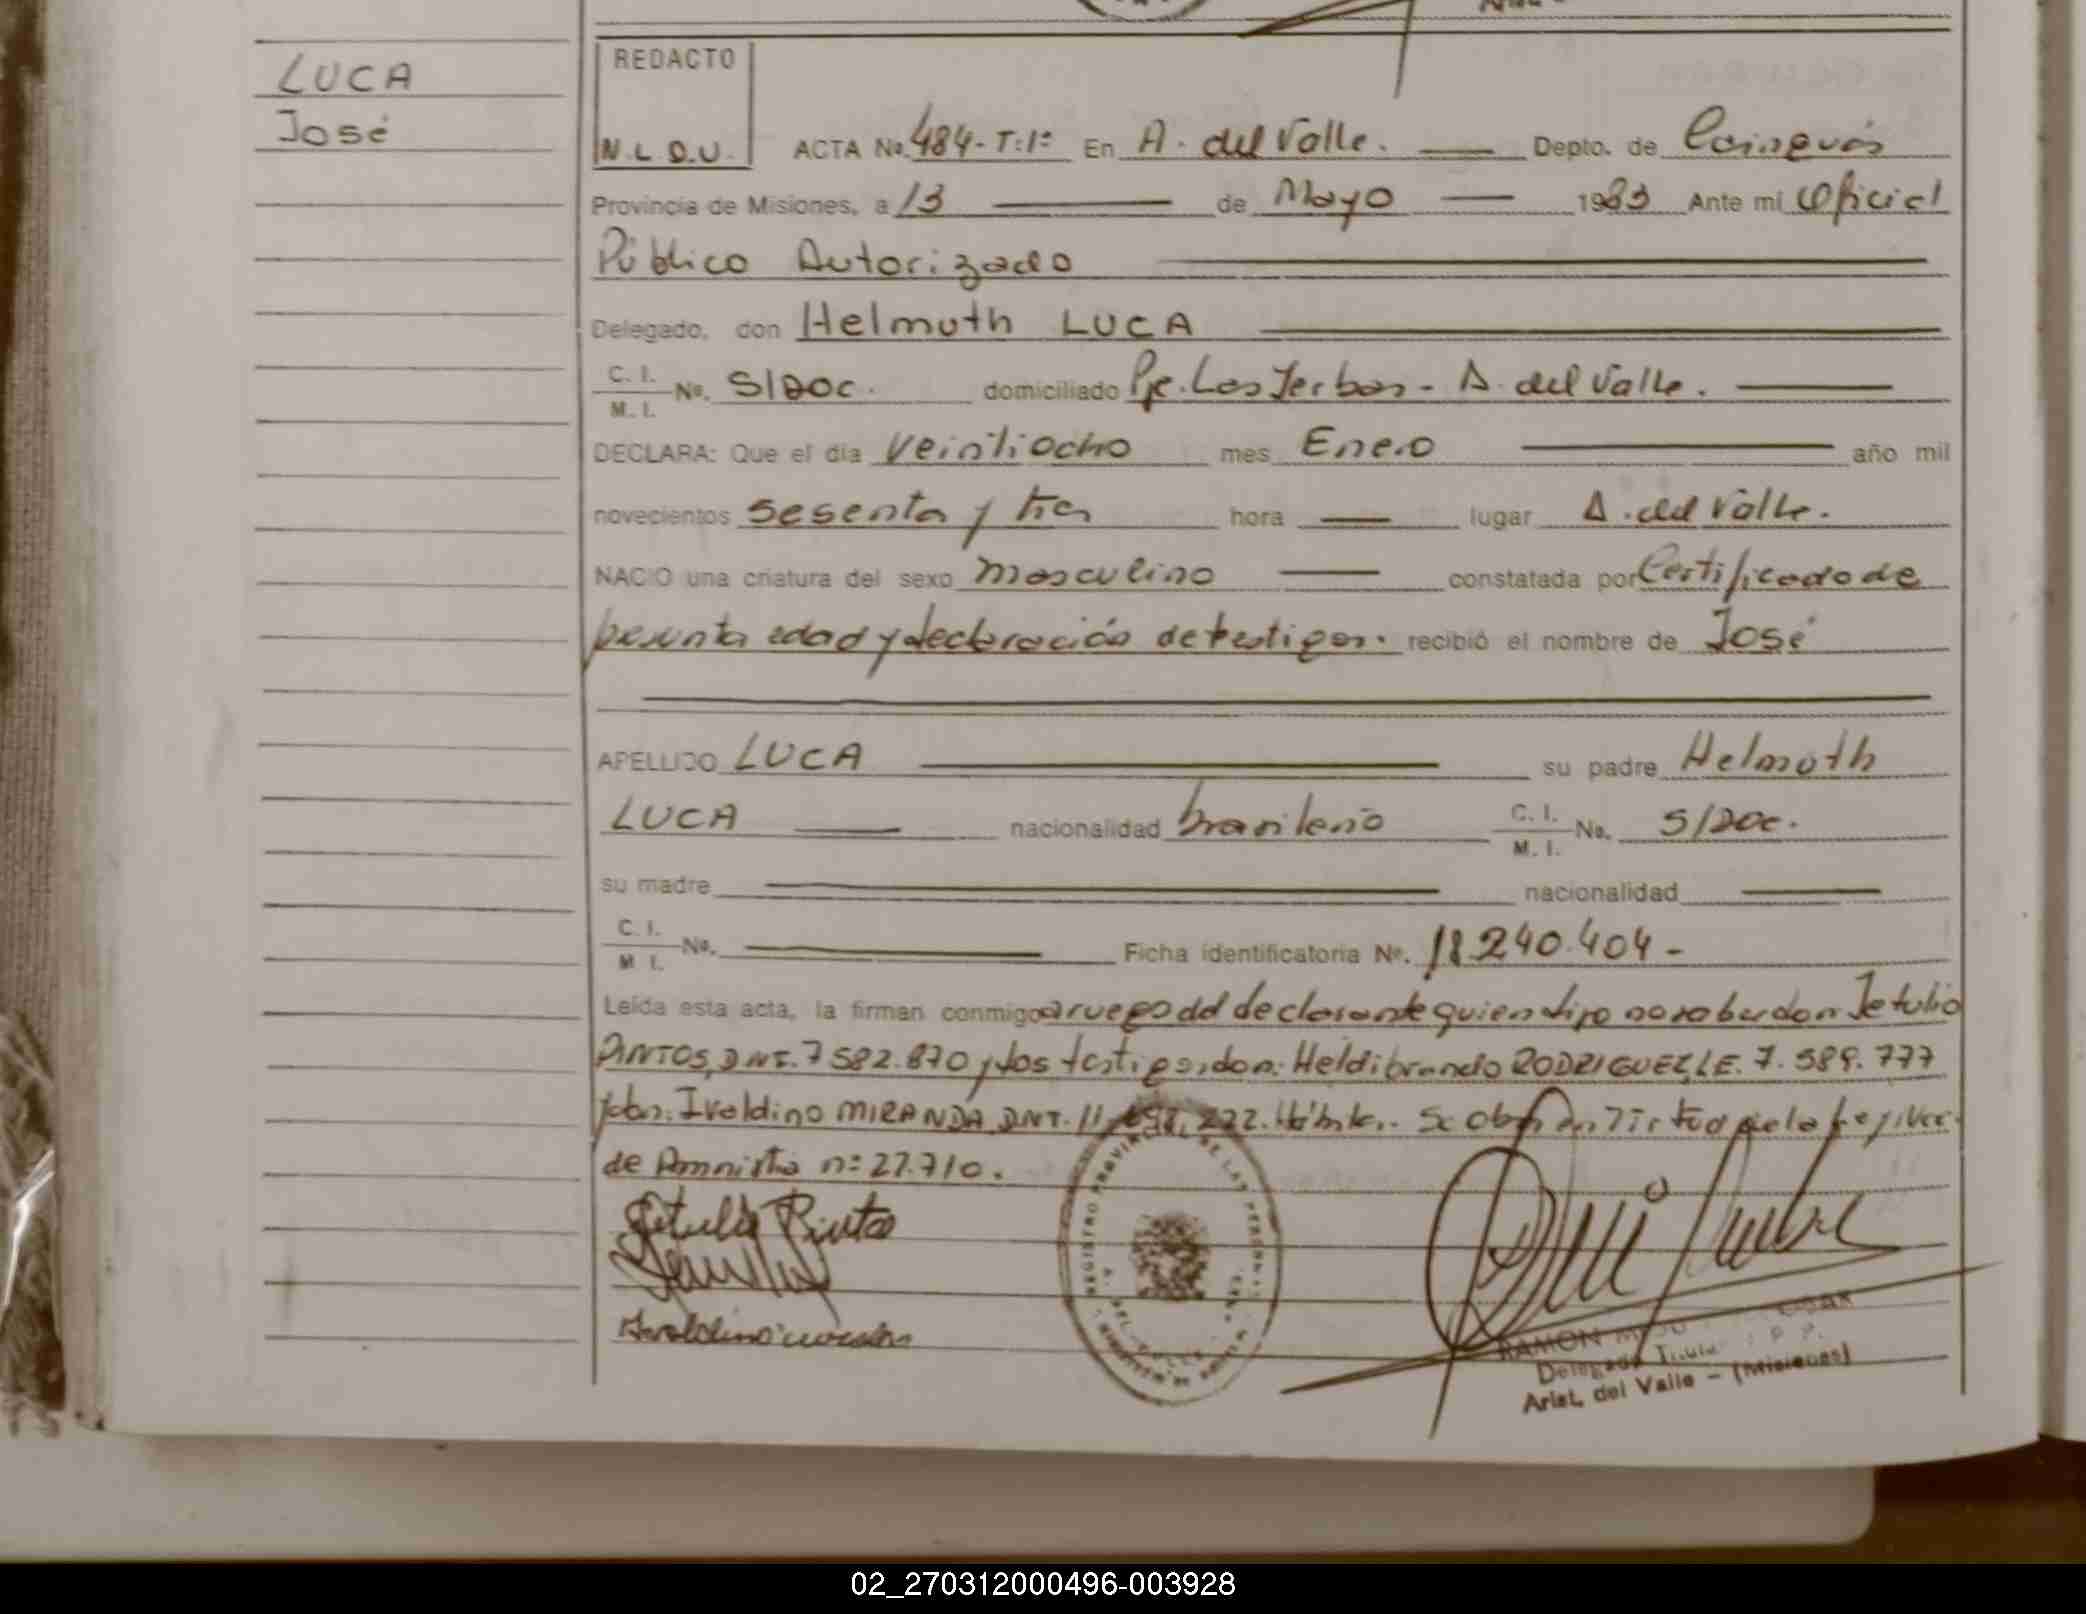 LUCA
José
REDACTO
N.L.D.U.
ACTA No. 484-T:1º En A. del Valle. Depto. de Cainguás
Provincia de Misiones, a 13 de Mayo 1983 Ante mí Oficial
Público Autorizado
Delegado, don Helmuth LUCA
C. I. M. I. No. S/Doc. domiciliado Pje. Las Yerbas - A. del Valle.
DECLARA: Que el día veintiocho mes Enero año mil
novecientos sesenta y tres hora lugar A. del Valle.
NACIO una criatura del sexo masculino constatada por Certificado de
presunta edad y declaración de testigos. recibió el nombre de José
APELLIDO LUCA su padre Helmuth
LUCA nacionalidad brasileño C. I. M. I. No. S/Doc.
su madre nacionalidad
C. I. M. I. No. Ficha identificatoria No. 18.240.404-
Leída esta acta, la firman conmigo a ruego del declarante quien dijo no saber don Jetulio
PINTOS, DNI. 7582.870 y los testigos, don: Heldibrando RODRIGUEZ, LE. 7.589.777
y don: Ivaldino MIRANDA, DNI. 11. 222. Se
de Amnistía nº 22.710.
Getulio Pinto
REGISTRO PROVINCIAL DE LAS PERSONAS
RAMON
Delegado Titular
Arist. del Valle - (Misiones)
02_270312000496-003928